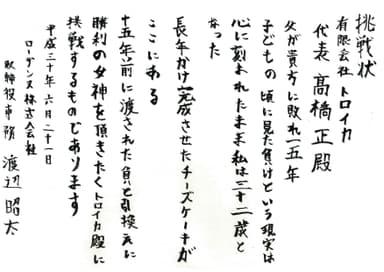 挑戦状
有限会社 トロイカ
代表 高橋 正 殿
父が貴方に敗れ一五年
子どもの頃に見た負けという現実は
心に刻まれたまま私は三十二歳と
なった
長年かけ完成させたチーズケーキが
ここにある
十五年前に渡された負と引換えに
勝利の女神を頂きたくトロイカ殿に
挑戦するものであります
平成三十年六月二十一日
ローゲンス株式会社
取締役専務 渡辺 昭太